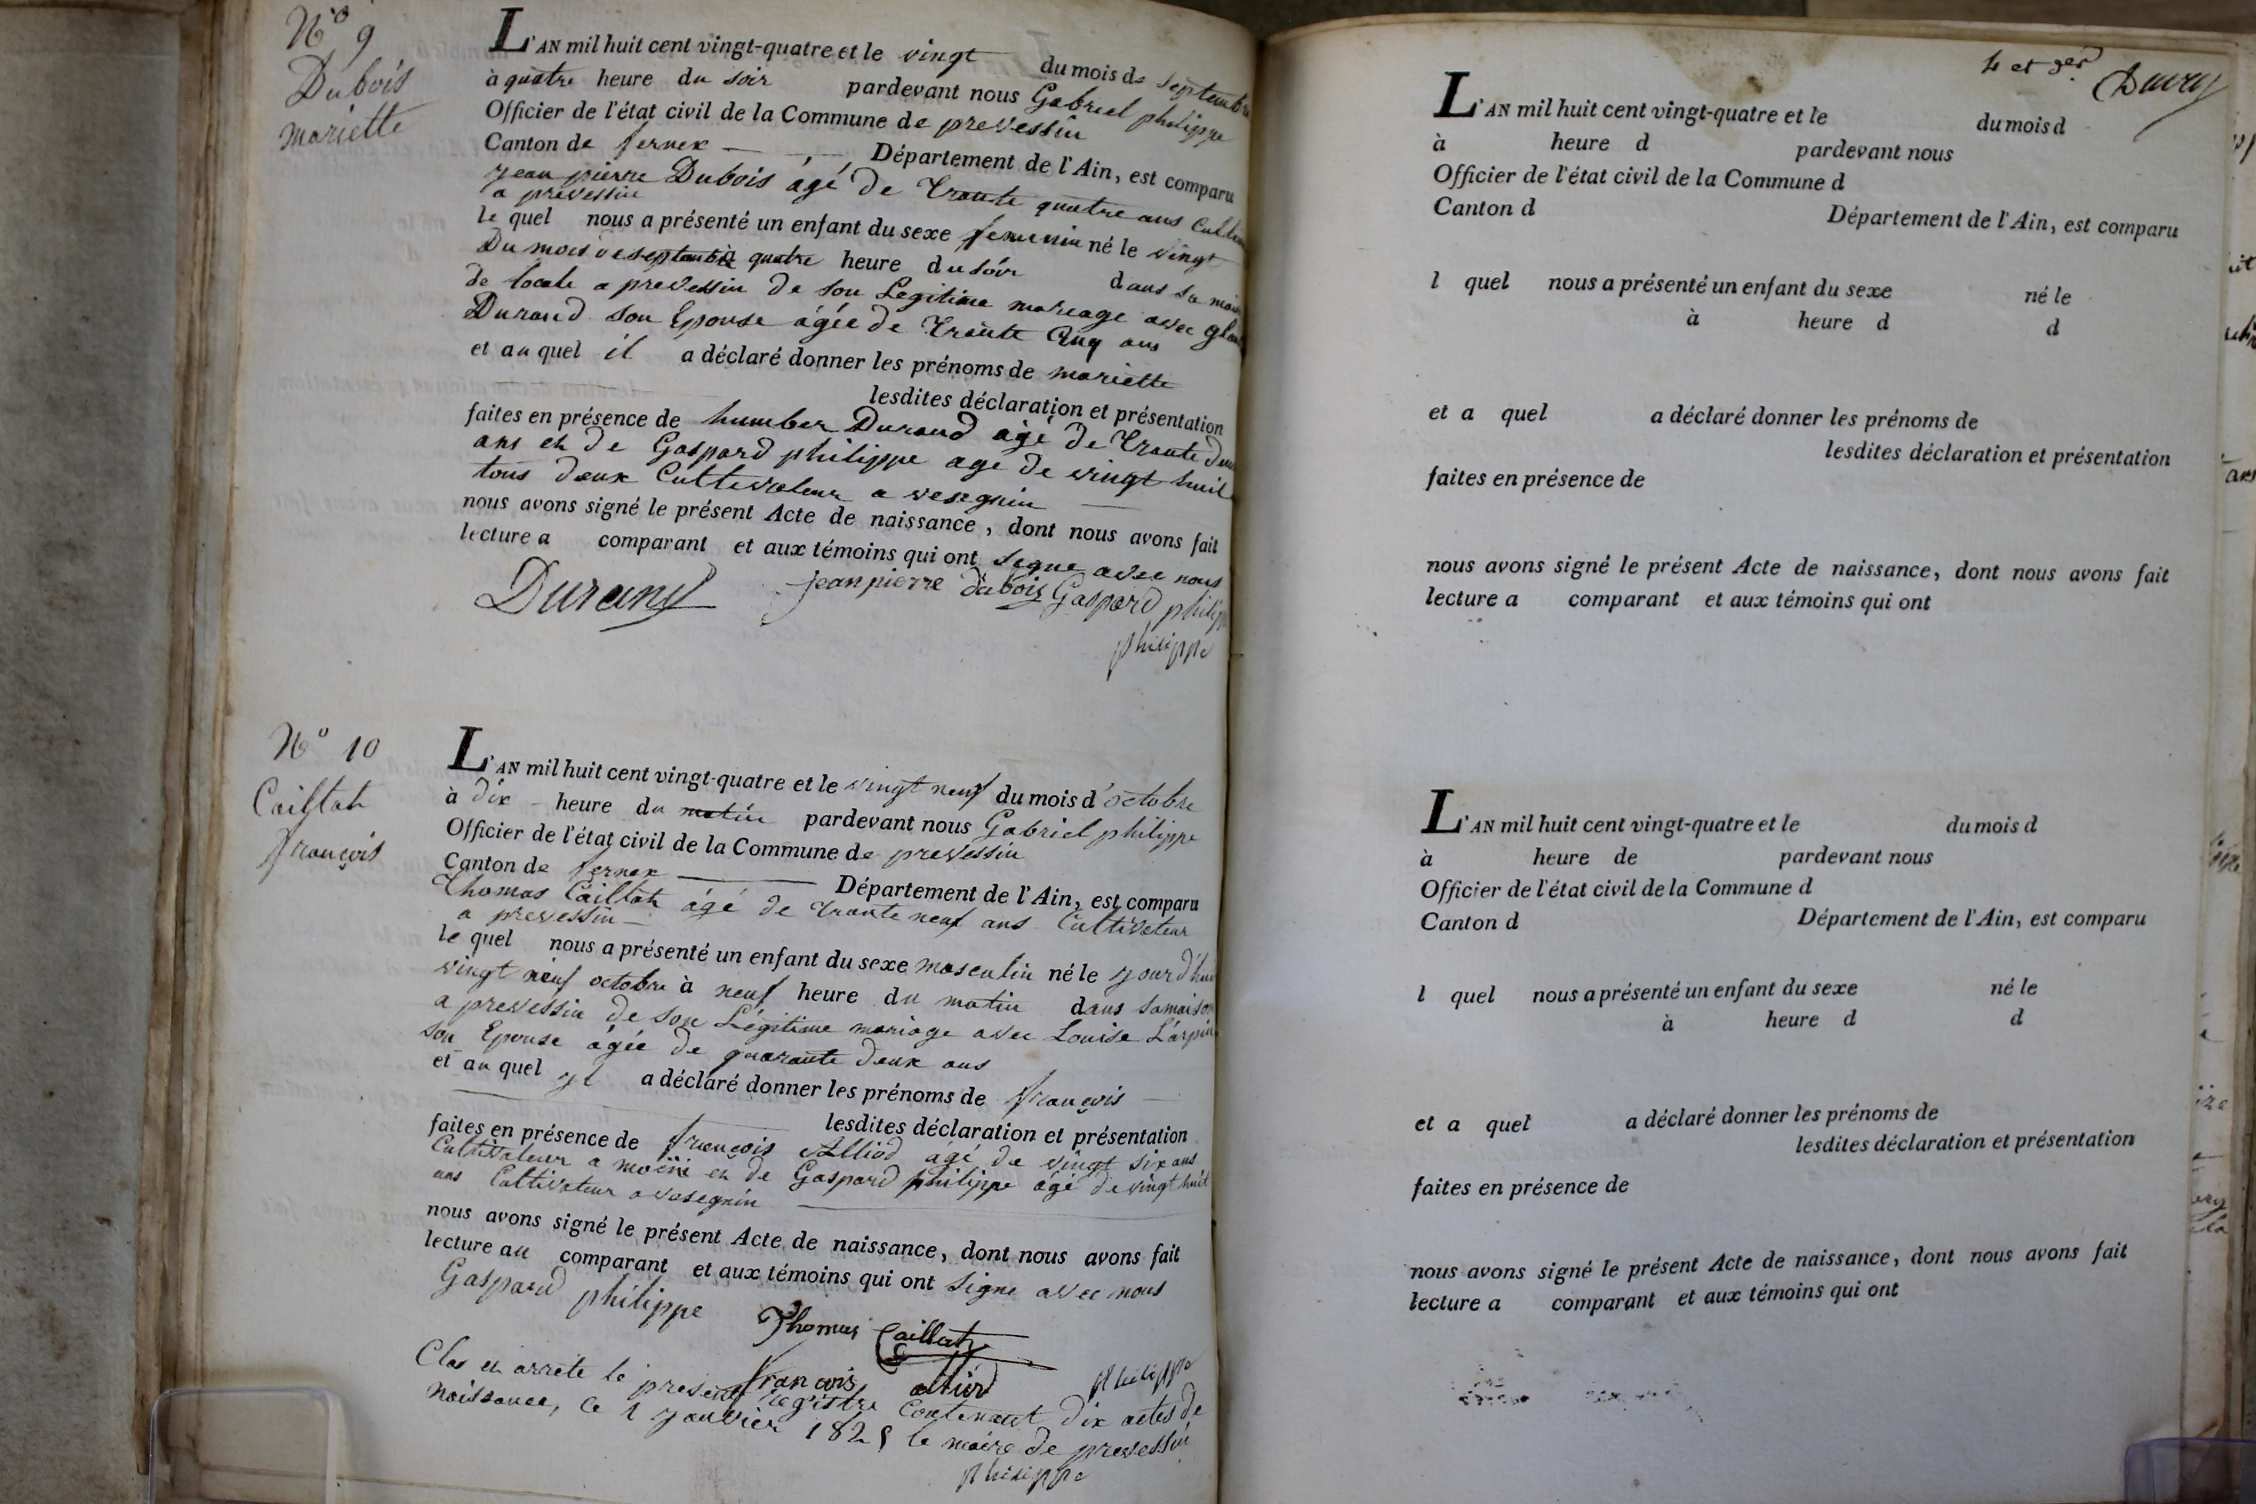 N° 9
Dubois
mariette
L'AN mil huit cent vingt-quatre et le vingt du mois de septembre
à quatre heure du soir pardevant nous Gabriel philippe
Officier de l'état civil de la Commune de prevessin
Canton de fernex Département de l'Ain, est comparu
jean pierre Dubois âgé de trante quatre ans
a prevessin
le quel nous a présenté un enfant du sexe femenin né le vingt
Du mois de septembre quatre heure du soir dans sa
de locate a prevessin de son Legitime mariage avec
Durand son Epouse âgée de trante Cinq ans
et au quel il a déclaré donner les prénoms de mariette
lesdites déclaration et présentation
faites en présence de humber Durand âgé de trante
ans et de Gaspard philippe age de vingt huit
tous deux Cultivateur a vesegnin
nous avons signé le présent Acte de naissance, dont nous avons fait
lecture a comparant et aux témoins qui ont signe avec nous
Durand jean pierre dubois Gaspard philippe
philippe
N° 10
Caillat
françois
L'AN mil huit cent vingt-quatre et le vingt neuf du mois d'octobre
à dix heure du matin pardevant nous Gabriel philippe
Officier de l'état civil de la Commune de prevessin
Canton de fernex Département de l'Ain, est comparu
Thomas Caillat âgé de trante neuf ans Cultivateur
a prevessin
le quel nous a présenté un enfant du sexe masculin né le jourd'hui
vingt neuf octobre à neuf heure du matin dans sa maison
a prevessin de son Légitime mariage avec Louise
son Epouse âgée de quarante deux ans
et au quel yl a déclaré donner les prénoms de françois
lesdites déclaration et présentation
faites en présence de françois Alliod agé de vingt six ans
Cultivateur a et de Gaspard philippe âgé de vingt huit
ans Cultivateur a vesegnin
nous avons signé le présent Acte de naissance, dont nous avons fait
lecture au comparant et aux témoins qui ont signe avec nous
Gaspard philippe Thomas Caillat
françois alliod philippe
Clos et arrete le present registre Contenant dix actes de
naissance, ce 1 janvier 1825 le maire de prevessin
philippe
4 et der
L'AN mil huit cent vingt-quatre et le du mois d
à heure d pardevant nous
Officier de l'état civil de la Commune d
Canton d Département de l'Ain, est comparu
l quel nous a présenté un enfant du sexe né le
à heure d d
et a quel a déclaré donner les prénoms de
lesdites déclaration et présentation
faites en présence de
nous avons signé le présent Acte de naissance, dont nous avons fait
lecture a comparant et aux témoins qui ont
L'AN mil huit cent vingt-quatre et le du mois d
à heure de pardevant nous
Officier de l'état civil de la Commune d
Canton d Département de l'Ain, est comparu
l quel nous a présenté un enfant du sexe né le
à heure d d
et a quel a déclaré donner les prénoms de
lesdites déclaration et présentation
faites en présence de
nous avons signé le présent Acte de naissance, dont nous avons fait
lecture a comparant et aux témoins qui ont